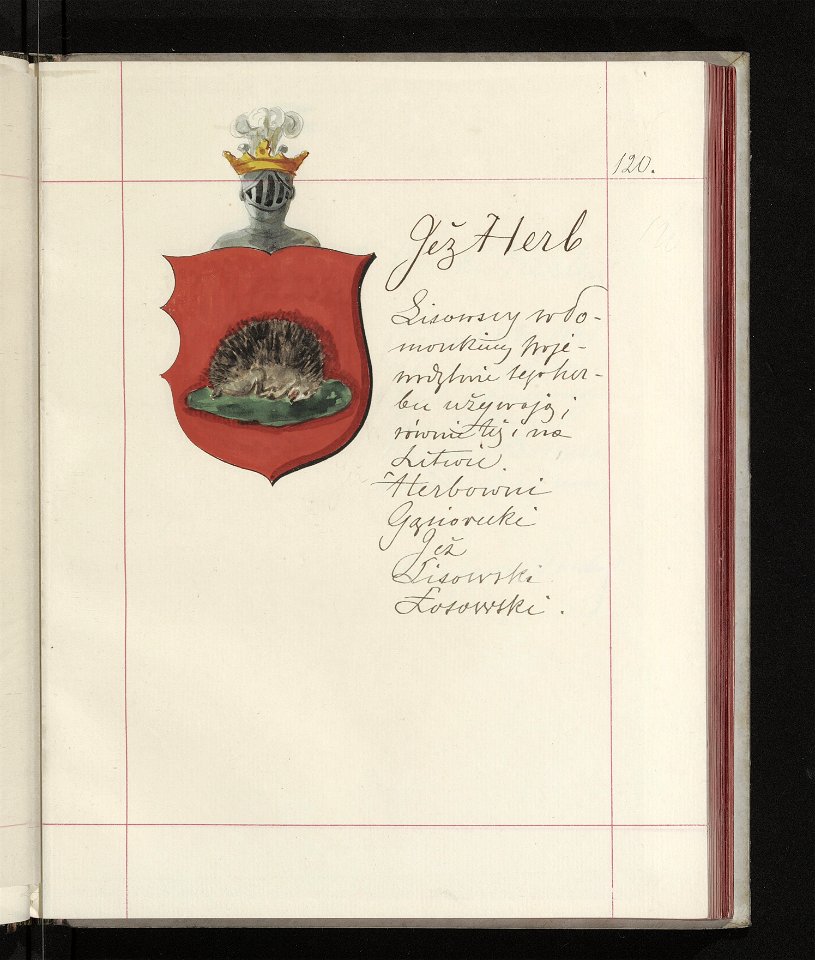 120.
Jeż Herb
Lisowscy w Do-
mowskim woje-
wództwie tego her-
bu używają i
również też i na
Litwie.
Herbowni
Gąsiorecki
Jeż
Lisowski
Łosowski.